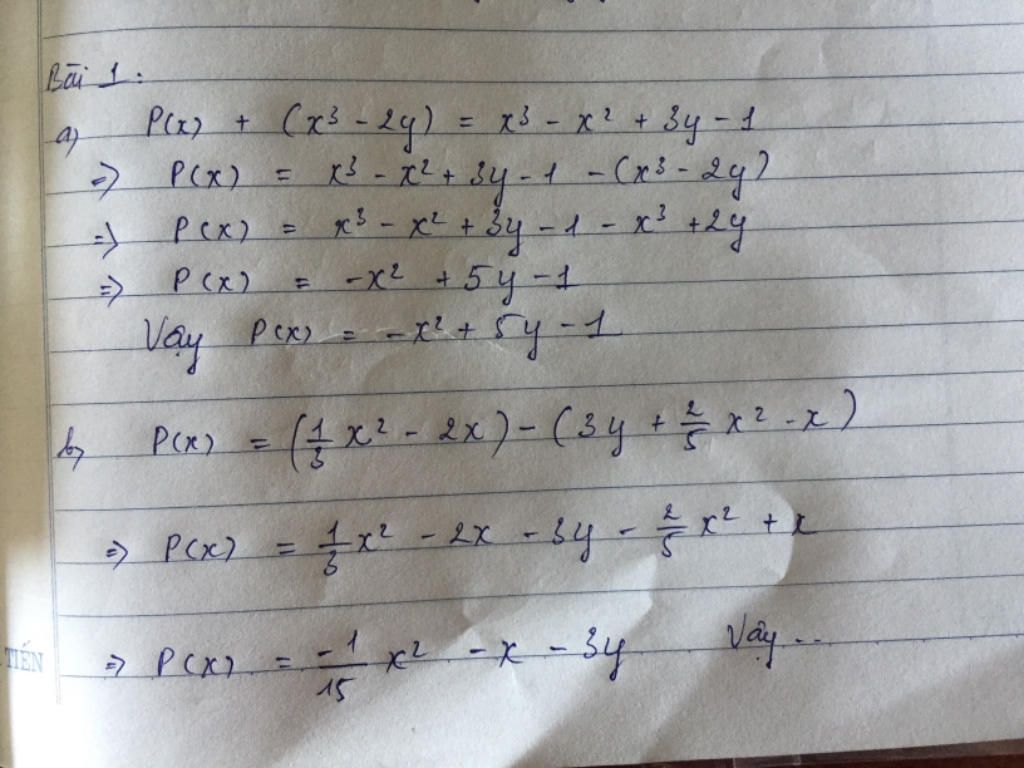 Bài 1:
a) P(x) + (x³ - 2y) = x³ - x² + 3y - 1
=> P(x) = x³ - x² + 3y - 1 - (x³ - 2y)
=> P(x) = x³ - x² + 3y - 1 - x³ + 2y
=> P(x) = -x² + 5y - 1
Vậy P(x) = -x² + 5y - 1
b) P(x) = (1/3 x² - 2x) - (3y + 2/5 x² - x)
=> P(x) = 1/3 x² - 2x - 3y - 2/5 x² + x
=> P(x) = -1/15 x² - x - 3y Vậy ..
TIẾN